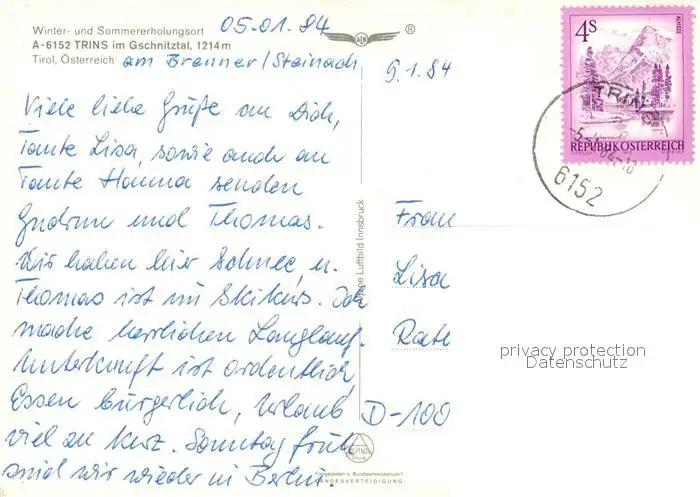 Winter- und Sommererholungsort
A-6152 TRINS im Gschnitztal, 1214m
Tirol, Österreich
05.01.84
am Brenner/Steinach
ALB
®
9.1.84
Viele liebe Grüße an Dich,
Tante Lisa, sowie auch an
Tante Hanna senden
Gudrun und Thomas.
Wir haben hier Schnee, u.
Thomas ist im Skikurs. Ich
mache herrlichen Langlauf.
Unterkunft ist ordentlich,
Essen bürgerlich, Urlaub
viel zu kurz. Sonntag früh
sind wir wieder in Berlin.
Alpine Luftbild Innsbruck
Freigegeben v. Bundesministerium f.
LANDESVERTEIDIGUNG
4S
ALMSEE
REPUBLIK ÖSTERREICH
TRINS
6152
Frau
Lisa
D-100
privacy protection
Datenschutz